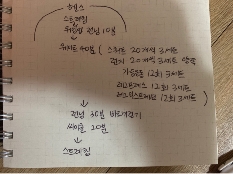 헬스
스트레칭
워밍업 런닝 10분
웨이트 40분 ( 스쿼트 20개씩 3세트
런지 20개씩 3세트 양쪽
가슴운동 12회 3세트
레그프레스 12회 3세트
레그익스텐션 12회 3세트 )
런닝 30분 빠르게걷기
싸이클 20분
스트레칭